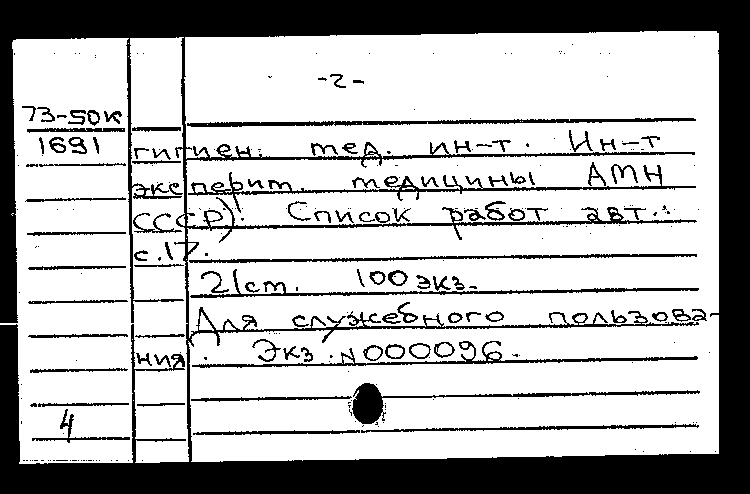 -2-
73-50к
1691
гигиен. мед. ин-т. Ин-т
эксперит. медицины АМН
СССР). Список работ авт.:
с.17.
21см. 100 экз.
Для служебного пользова-
ния. Экз. N000096.
4